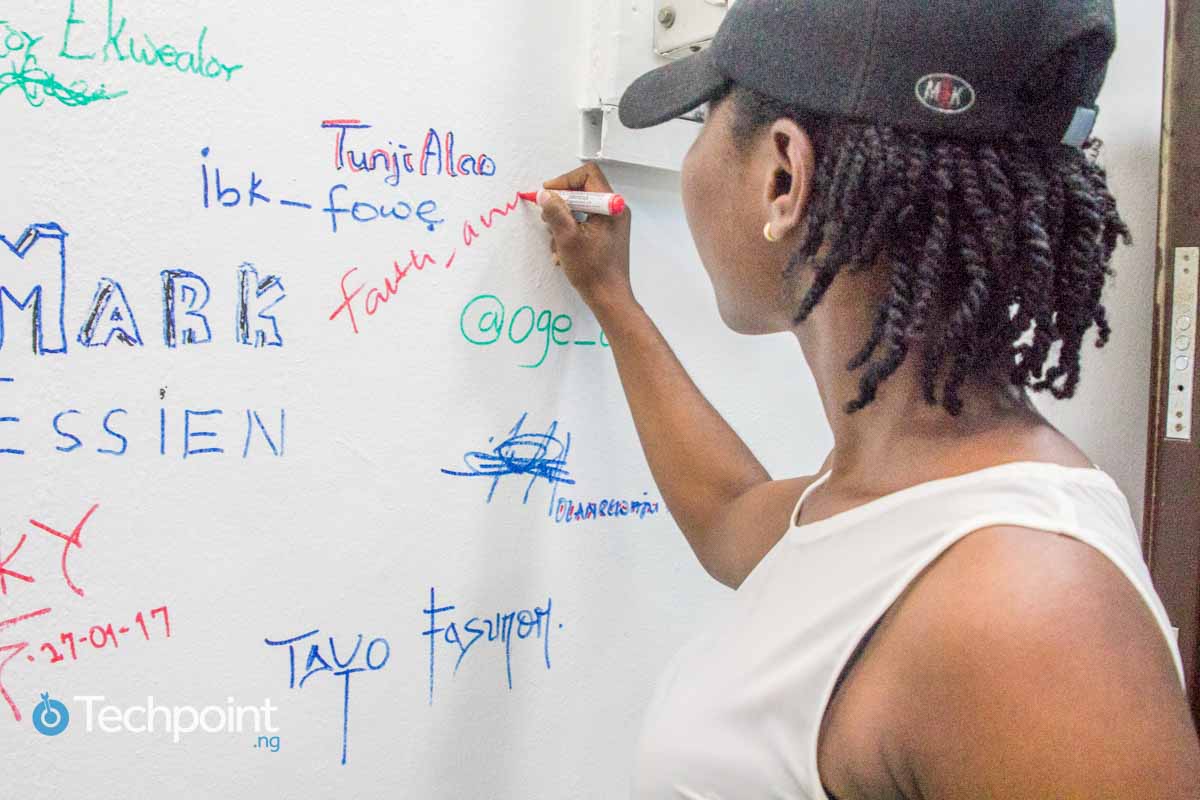 Ekwealor
Tunji Alao
ibk_fowe
faith_
@oge_
MARK
ESSIEN
KY
27-01-17
TAYO Fasunon.
M K
Techpoint
.ng